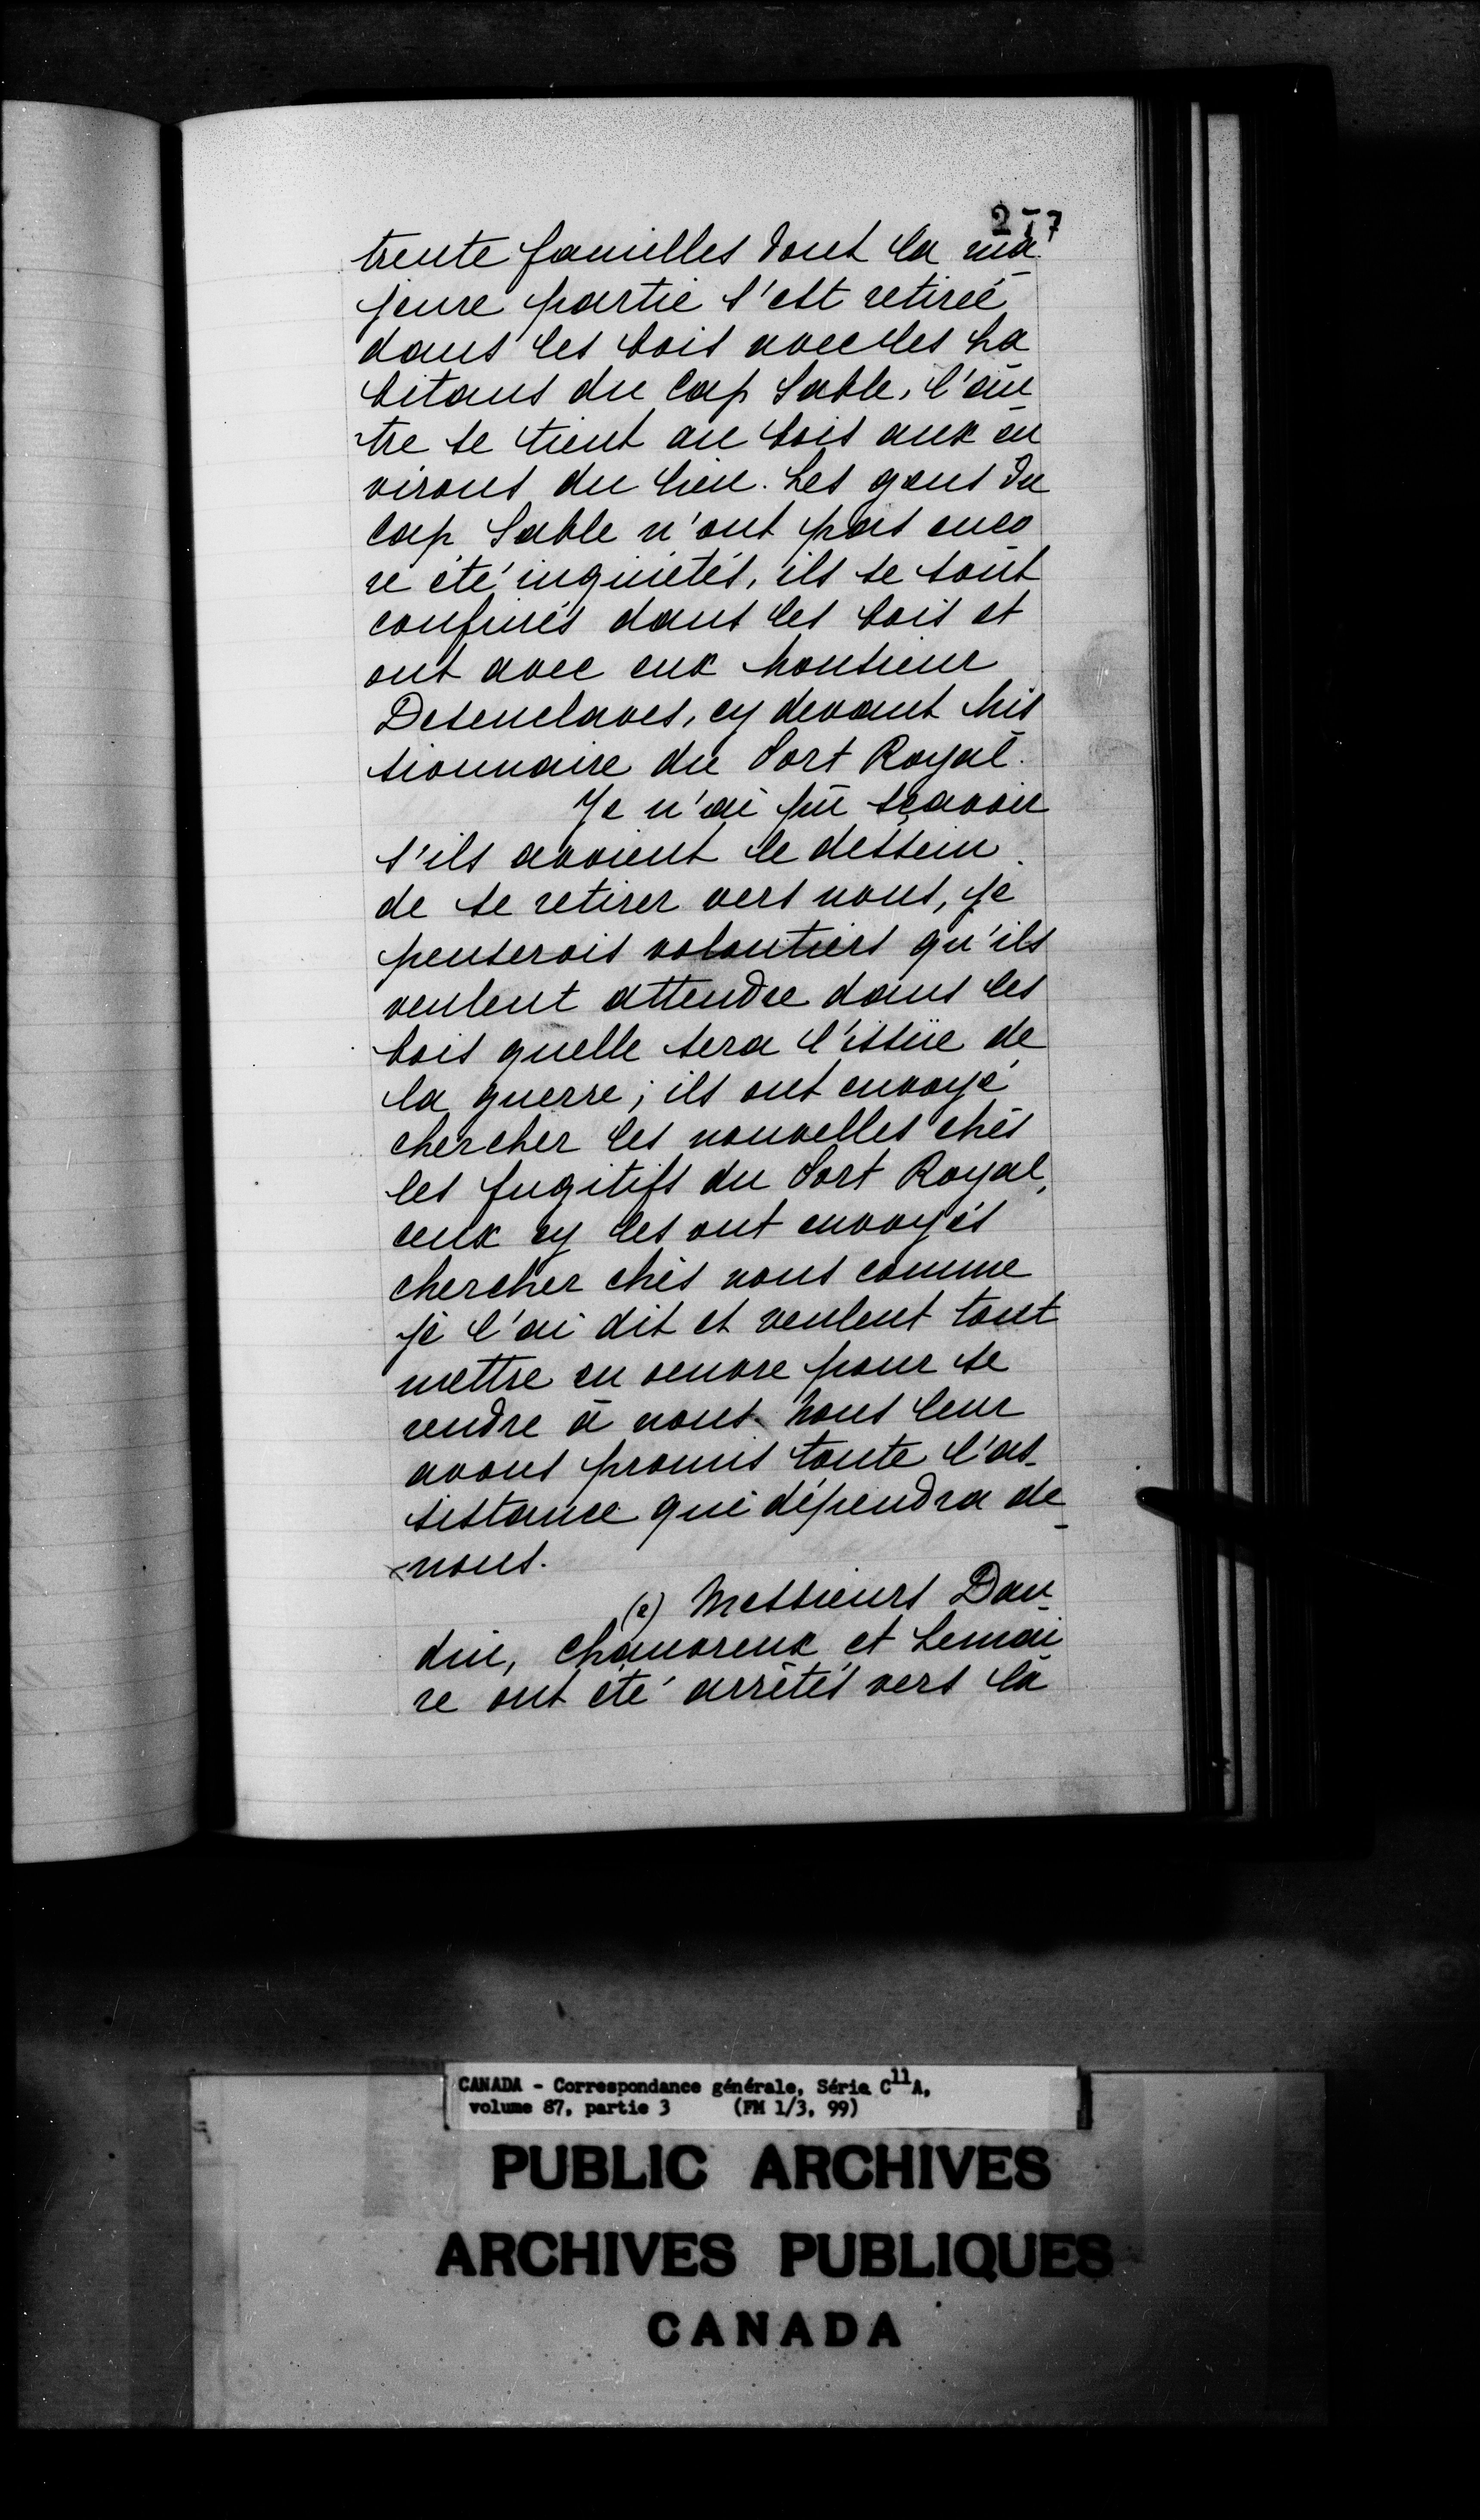 217
trente familles dont la ma
jeure partie s'est retirée
dans les bois avec les ha
bitans du Cap Sable, l'au
tre se tient au bois aux en
virons du lieu. Les gens du
Cap Sable n'ont pas enco
re été inquiétés, ils se sont
confinés dans les bois et
ont avec eux Monsieur
Desenclaves, cy devant Mis
sionnaire du Port Royal.
Je n'ai pû sçavoir
s'ils avoient le dessein
de se retirer vers nous, je
penserois volontiers qu'ils
veulent attendre dans les
bois quelle sera l'issüe de
la guerre; ils ont envoyé
chercher les nouvelles chés
les fugitifs du Port Royal,
ceux cy les ont envoyés
chercher chés nous comme
je l'ai dit et veulent tout
mettre en oeuvre pour se
rendre à nous. Nous leur
avons promis toute l'as-
sistance qui dépendra de
nous.
(e) Messieurs Dau
din, Chauvreux et Lemai
re ont été arrêtés vers la
CANADA - Correspondance générale, Série C11A,
volume 87, partie 3 (FM 1/3, 99)
PUBLIC ARCHIVES
ARCHIVES PUBLIQUES
CANADA